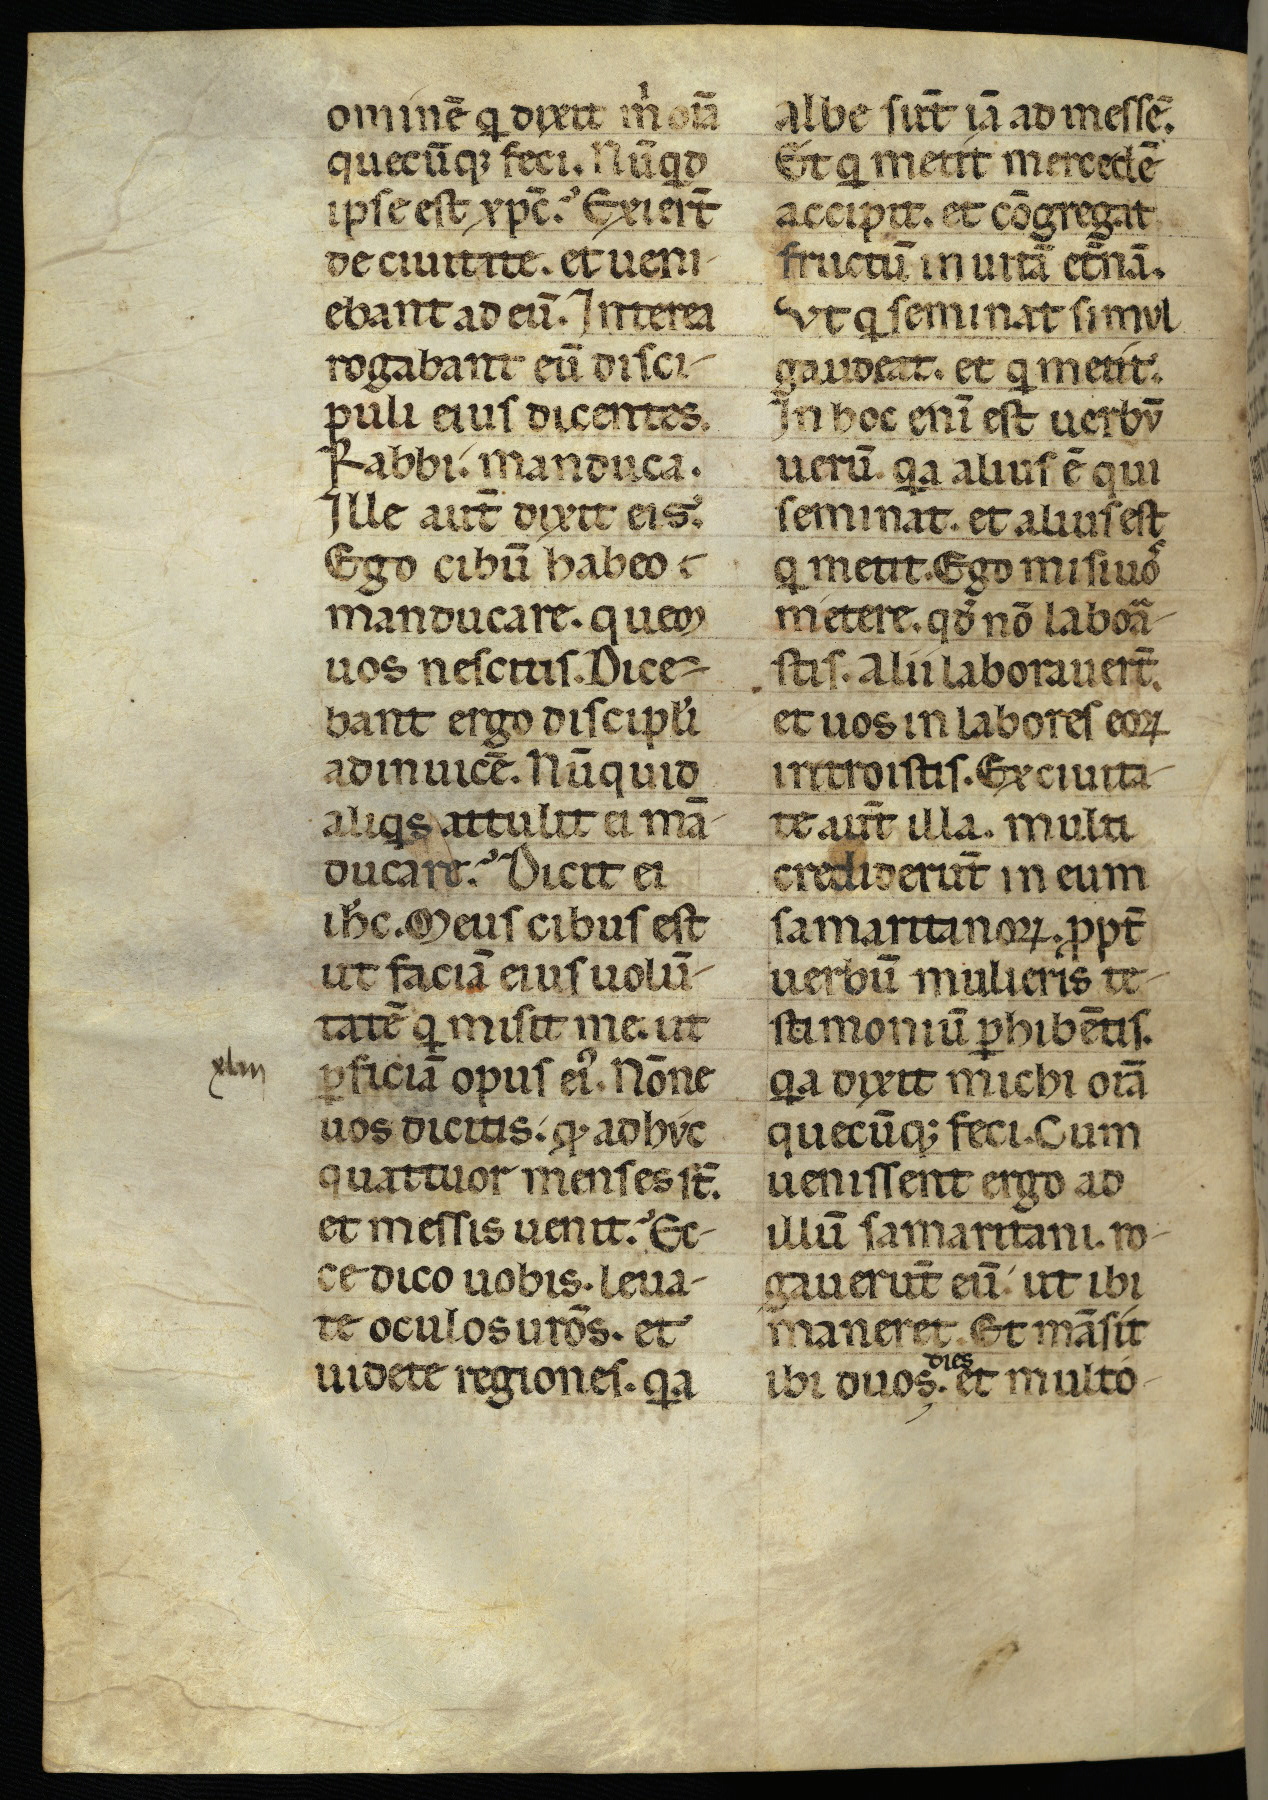 ominē q dixit m̄ oīa
quecūq; feci. Nūqd
ipse est xp̄c. Exiert̄
de ciuitate. et ueni-
ebant ad eū. Interea
rogabant eū disci-
puli eius dicentes.
Rabbi. manduca.
Ille aut̄ dixit eis.
Ego cibū habeo
manducare. quem
uos nescitis. Dice-
bant ergo discipłi
adinuicē. Nūquid
aliqs attulit ei mā-
ducare. Dicit ei
ih̄c. Meus cibus est
ut faciā eius uolū-
tatē q misit me. ut
xliii
ꝑficiā opus ei⁹. Nōne
uos dicitis. ꝙ adhvc
quattuor menses st̄.
et messis uenit. Ec-
ce dico uobis. leua-
te oculos urōs. et
uidete regiones. qa
Albe sūt iā ad messē.
Et q metit mercedē
accipit. et cōgregat
fructū in uitā et̄nā.
Vt q seminat simvl
gaudeat. et q metit.
In hoc enī est uerbv̄
uerū. qa alius ē qui
seminat. et alius est
q metit. Ego misi uoˢ
metere. qđ nō laboᵃ-
stis. Alii laborauert̄.
et uos in labores eoꝝ
introistis. Ex ciuita-
te aut̄ illa. multi
crediderūt in eum
samaritanoꝝ. ꝓpt̄
uerbū mulieris te-
stimoniū ꝑhibētis.
qa dixit michi oīa
quecūq; feci. Cum
uenissent ergo ad
illū samaritani. ro-
gauerūt eū. ut ibi
maneret. Et māsit
dies
ibi duos. et multo-